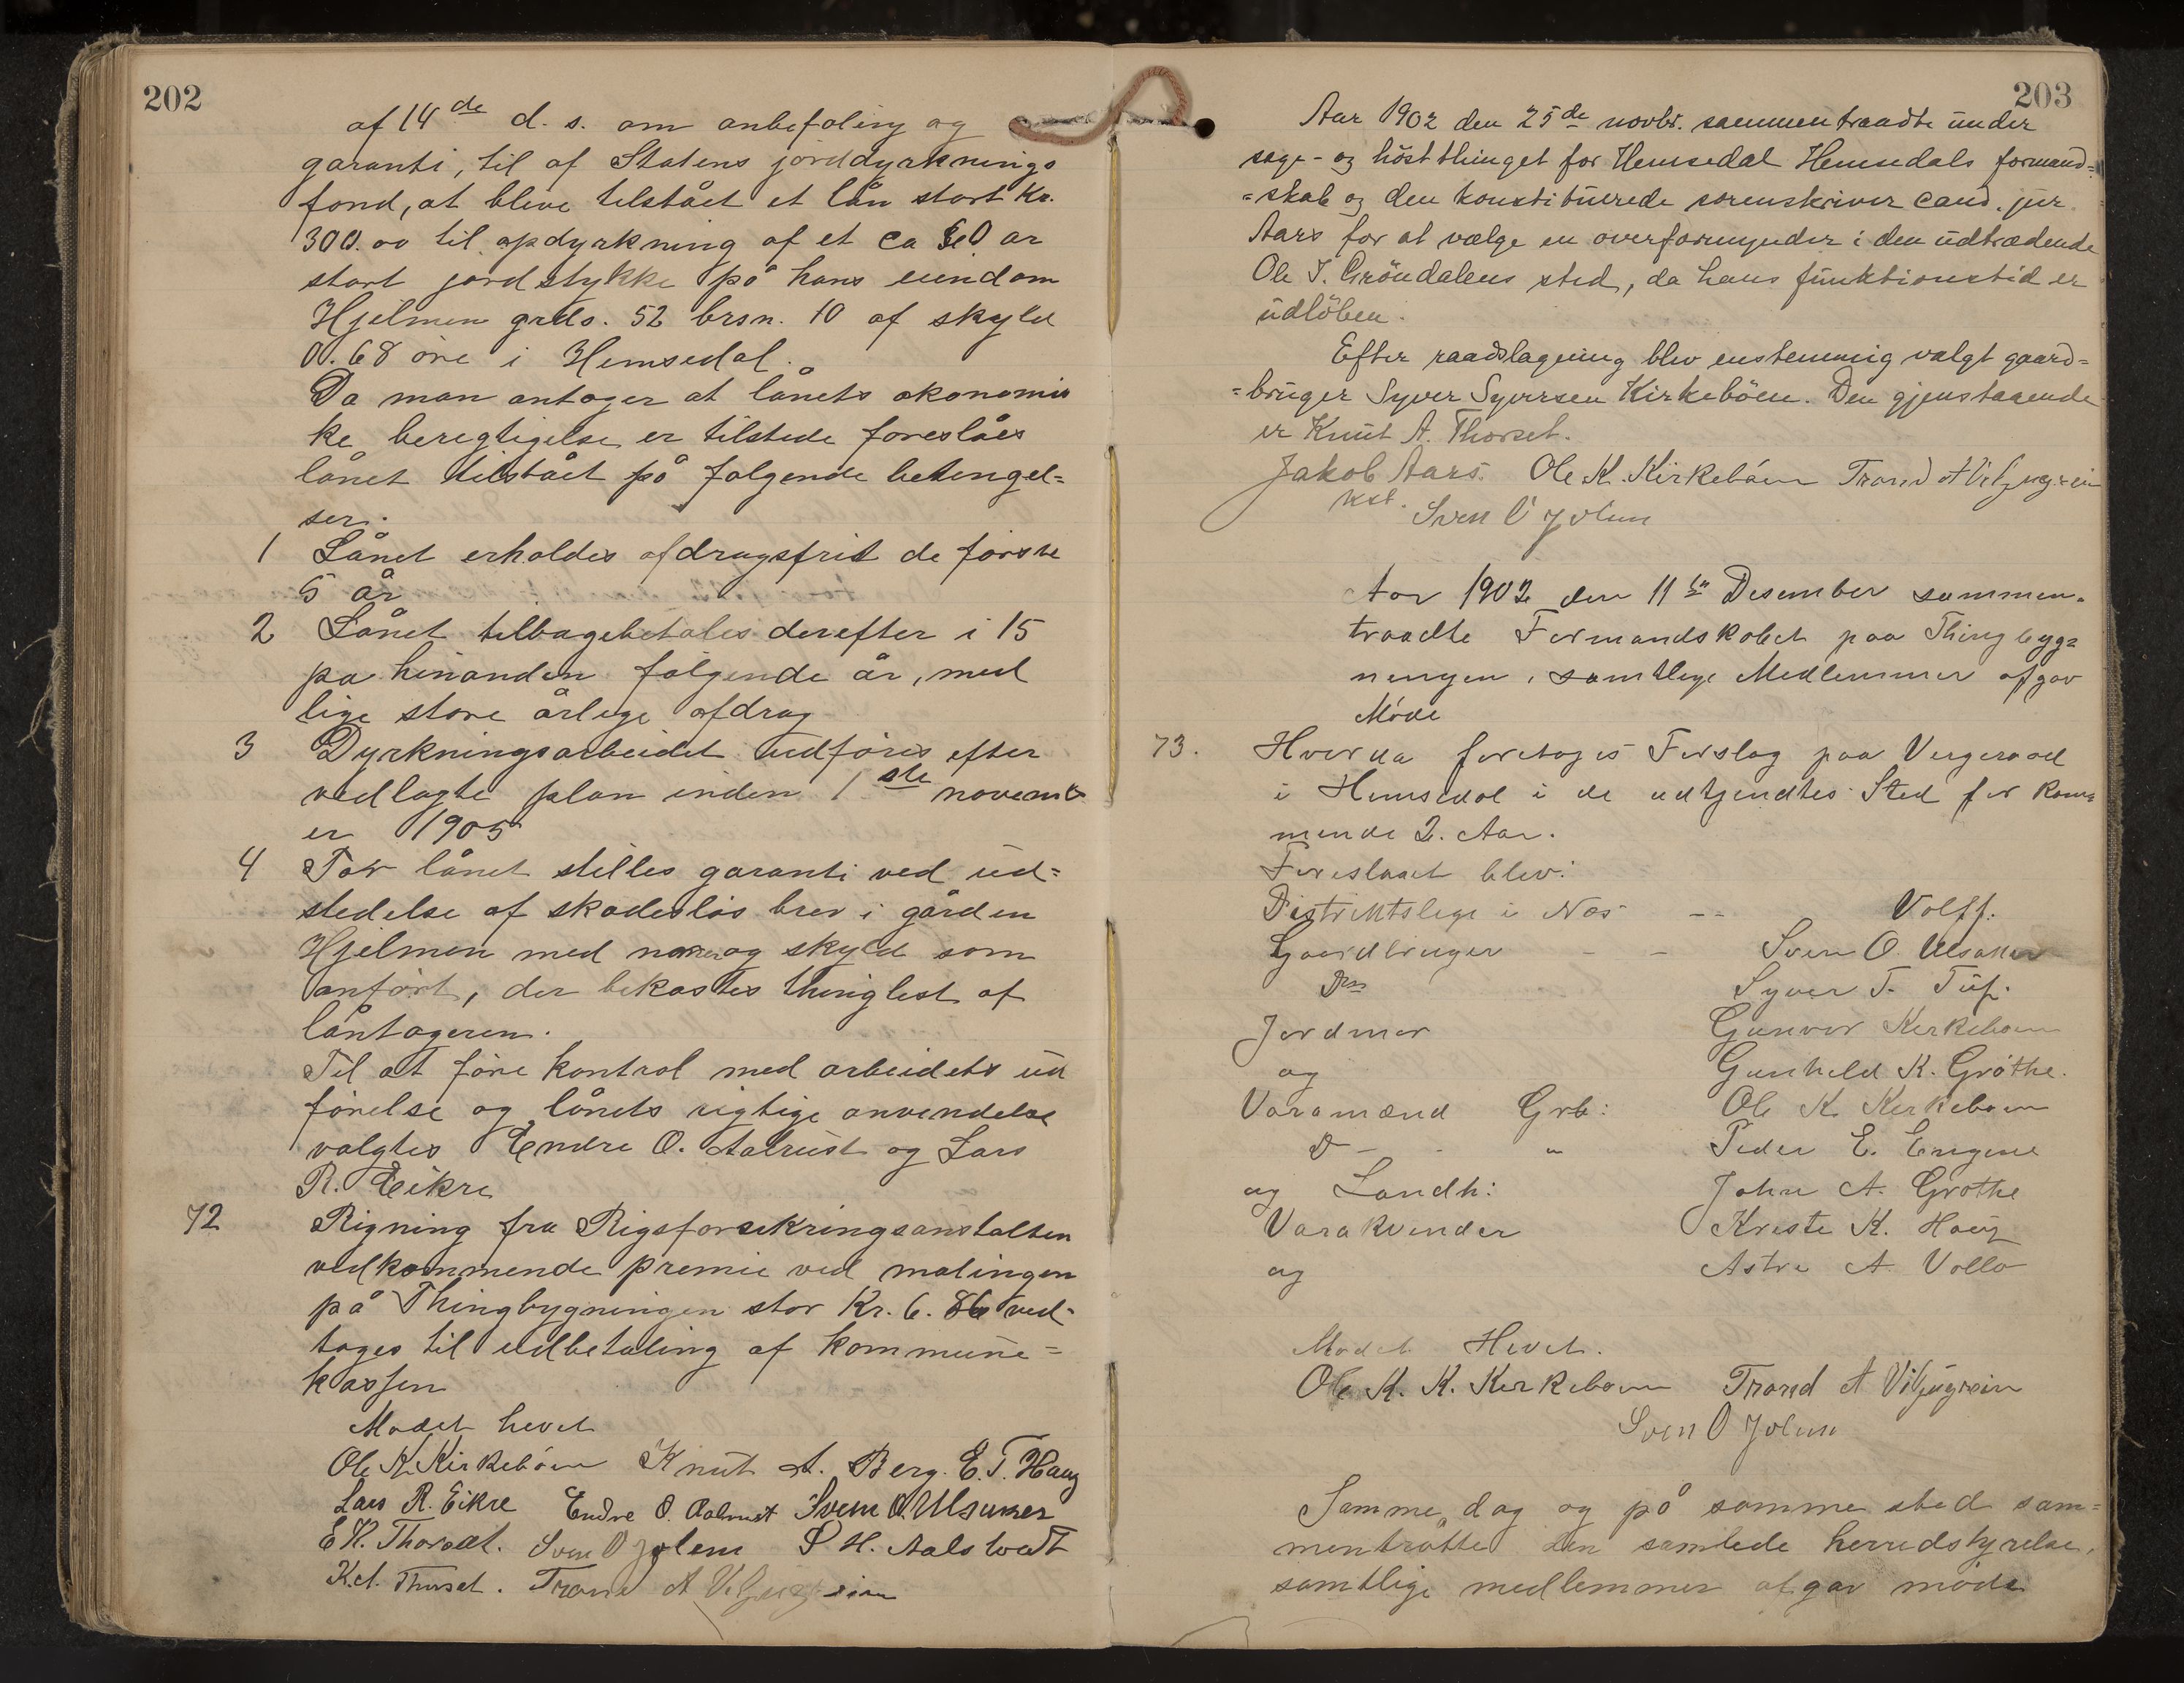 202
af 14de d. s. om anbefaling og
garanti, til af Statens jorddyrknings
fond, at bleve tilstået et lån stort Kr.
300.00 til opdyrkning af et ca ar
stort jordstykke på hans eiendom
Hjelmen grds. 52 brsn. 10 af skyld
0.68 øre i Hemsedal.
Da man antager at lånets økonomis
ke beregtigelse er tilstede foreslåes
lånet tilstået på følgende betengel=
ser.
1 Lånet erholdes afdragsfrit de første
5 år
2 Lånet tilbagebetales derefter i 15
pa hinanden følgende år, med
lige store årlige afdrag
3 Dyrkningsarbeidet udføres efter
vedlagte plan inden 1ste novemb
er 1905
4 For lånet stilles garanti ved ud=
stedelse af skadesløs brev i gården
Hjelmen med og skyld som
anført, der bekostes thinglest af
låntageren.
Til at føre kontrol med arbeidets ud
førelse og lånets rigtige anvendelse
valgtes Endre O. Aalrust og Lars
R. Eikre
72 Rigning fra Rigsforsekringsanstalten
vedkommende premie ved malingen
på Thingbygningen stor Kr. 6.86 ved=
toges til udbetaling af kommune=
kassen
Mødet hevet
Ole K. Kirkebøen Knut A. Berg. E. T. Haug
Lars R. Eikre Endre O. Aalrust Svein O. Ulsaker
E K. Thorset. Sven O Jolem H. Aalstvedt
K.A. Thorset. Trond A Viljugrein
203
Aar 1902 den 25de novbr. sammentraadte under
sage- og høstthinget for Hemsedal Hemsedals formand=
=skab og den konstituerede sorenskriver cand. jur.
Aars for at vælge en overformynder i den udtrædende
Ole I. Grøndalens sted, da hans funktionstid er
udløben.
Efter raadslagning blev enstemmig valgt gaard=
=bruger Syver Syversen Kirkebøen. Den gjenstaaende
er Knut A. Thorset.
Jakob Aars. Ole K. Kirkebøen Trond A Viljugrein
kst. Sven O Jolem
Aar 1902 den 11te Desember sammen=
traadte Formandskabet paa Thingbyg=
nengen, samtlege Medlemmer afgav
Møde
73. Hvor da foretages Forslag paa Vergeraad
i Hemsedal i de udtjendtes Sted for kom=
mende 2. Aar.
Foreslaaet blev:
Distriktslege i Nes -- Volff.
Gaardbruger - - Sven O. Ulsaker
Do Syver T. Tuf.
Jordmor Gunvor Kerkebøen
og Gunheld K. Grøthe.
Varamænd Grb: Ole K. Kerkebøen
D - - " Peder E. Engene
og Landh: John A. Grøthe
Varakvender Kreste K. Haug
og Astre A Vollo
Mødet Hevet.
Ole K. K. Kerkebøen Trond A Viljugrein
Sven O Jolem
Samme dag og på samme sted sam=
mentråtte den samlede herredstyrelse,
samtlige medlemmer afgav møde